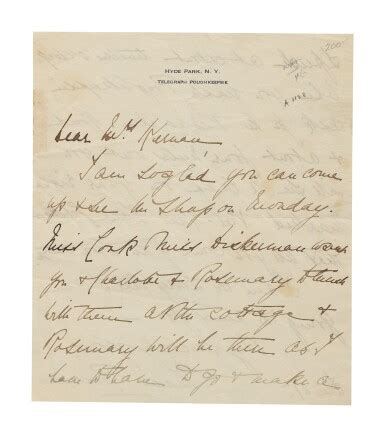 HYDE PARK, N.Y.
TELEGRAPH POUGHKEEPSIE
200
Dear Mrs Kernan
I am so glad you can come
up & see the shop on Monday.
Miss Cook Miss Dickerman want
you & Charlotte & Rosemary to lunch
with them at the cottage &
Rosemary will be there as I
have to have & make a